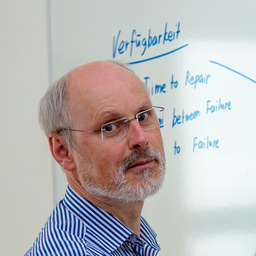 Verfügbarkeit
Time to Repair
between Failure
to Failure